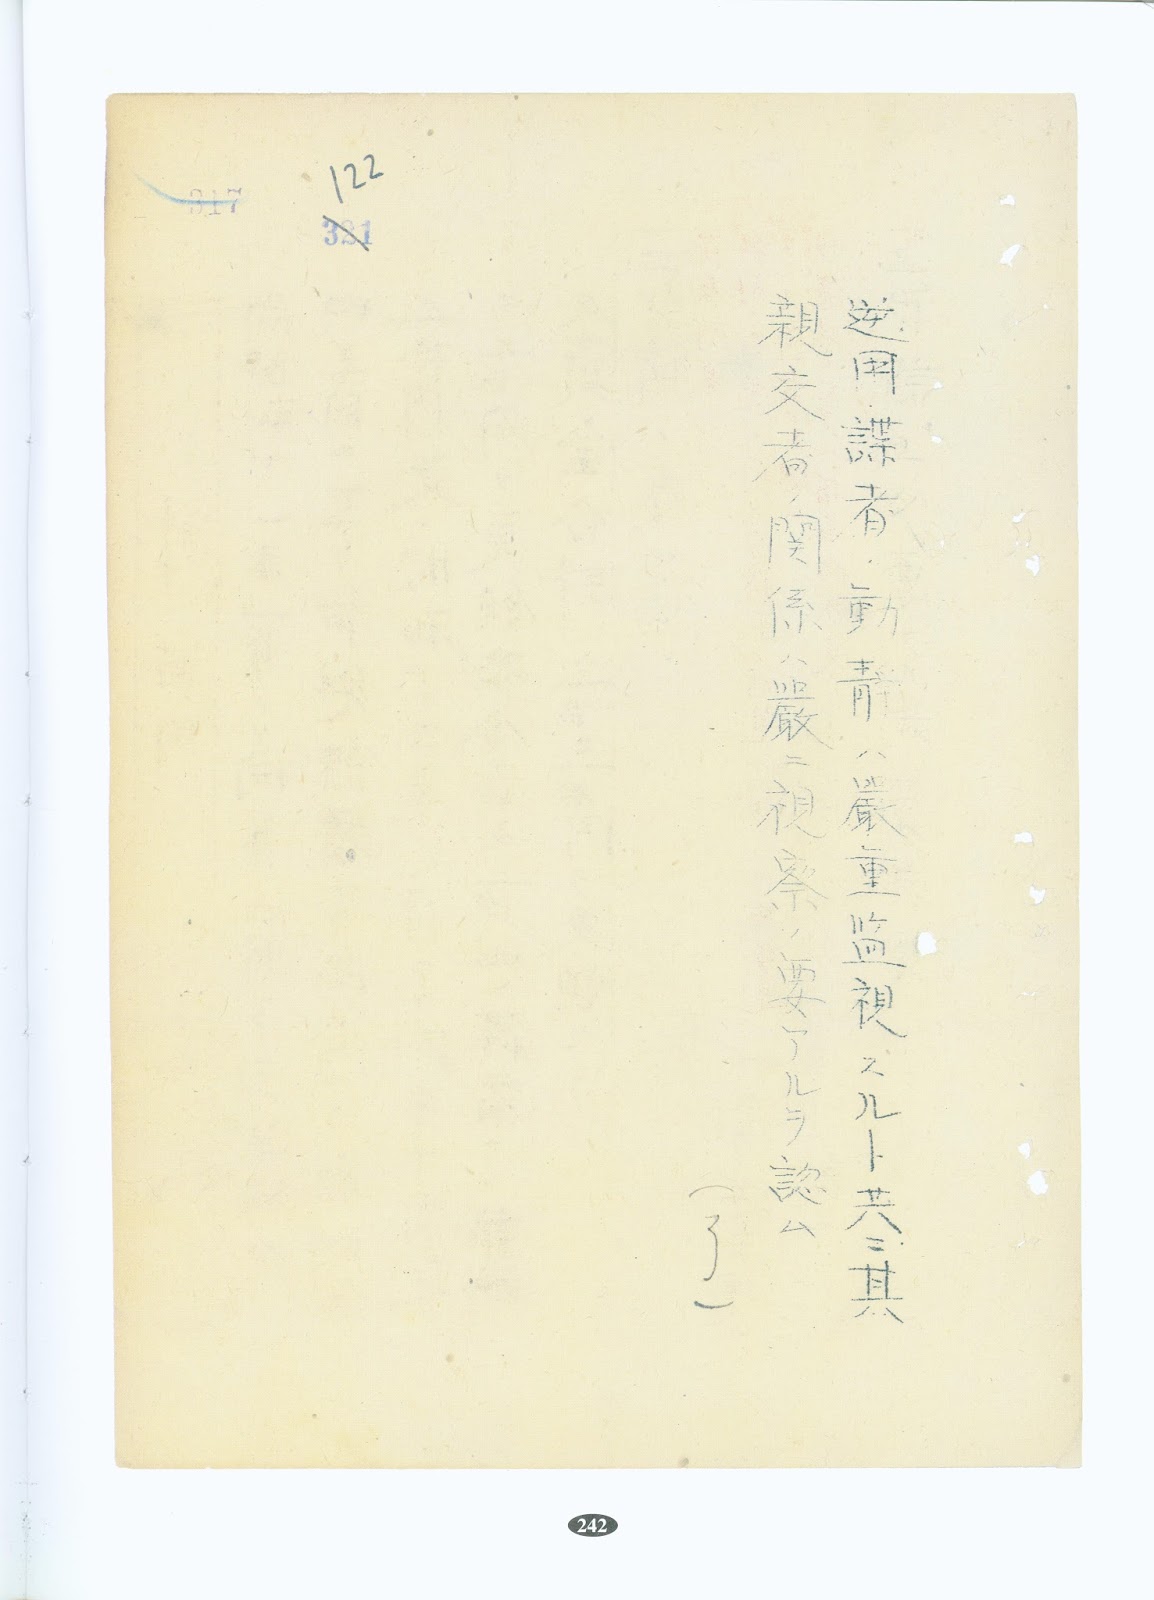 122
317
321
逆用諜者ノ動静ハ嚴重監視スルト共ニ其
親交者ノ関係ハ嚴ニ視察ノ要アルヲ認ム
(了)
242